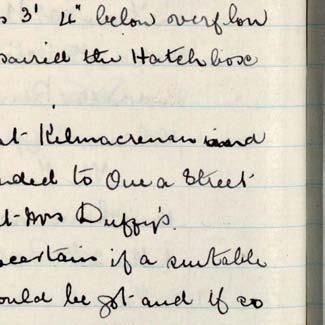 s 3' 4" below overflow
paired the Hatch box
at Kilmacrenan and
nded to One a Street
at Mrs Duffy's.
scertain if a suitable
ould be got and if so